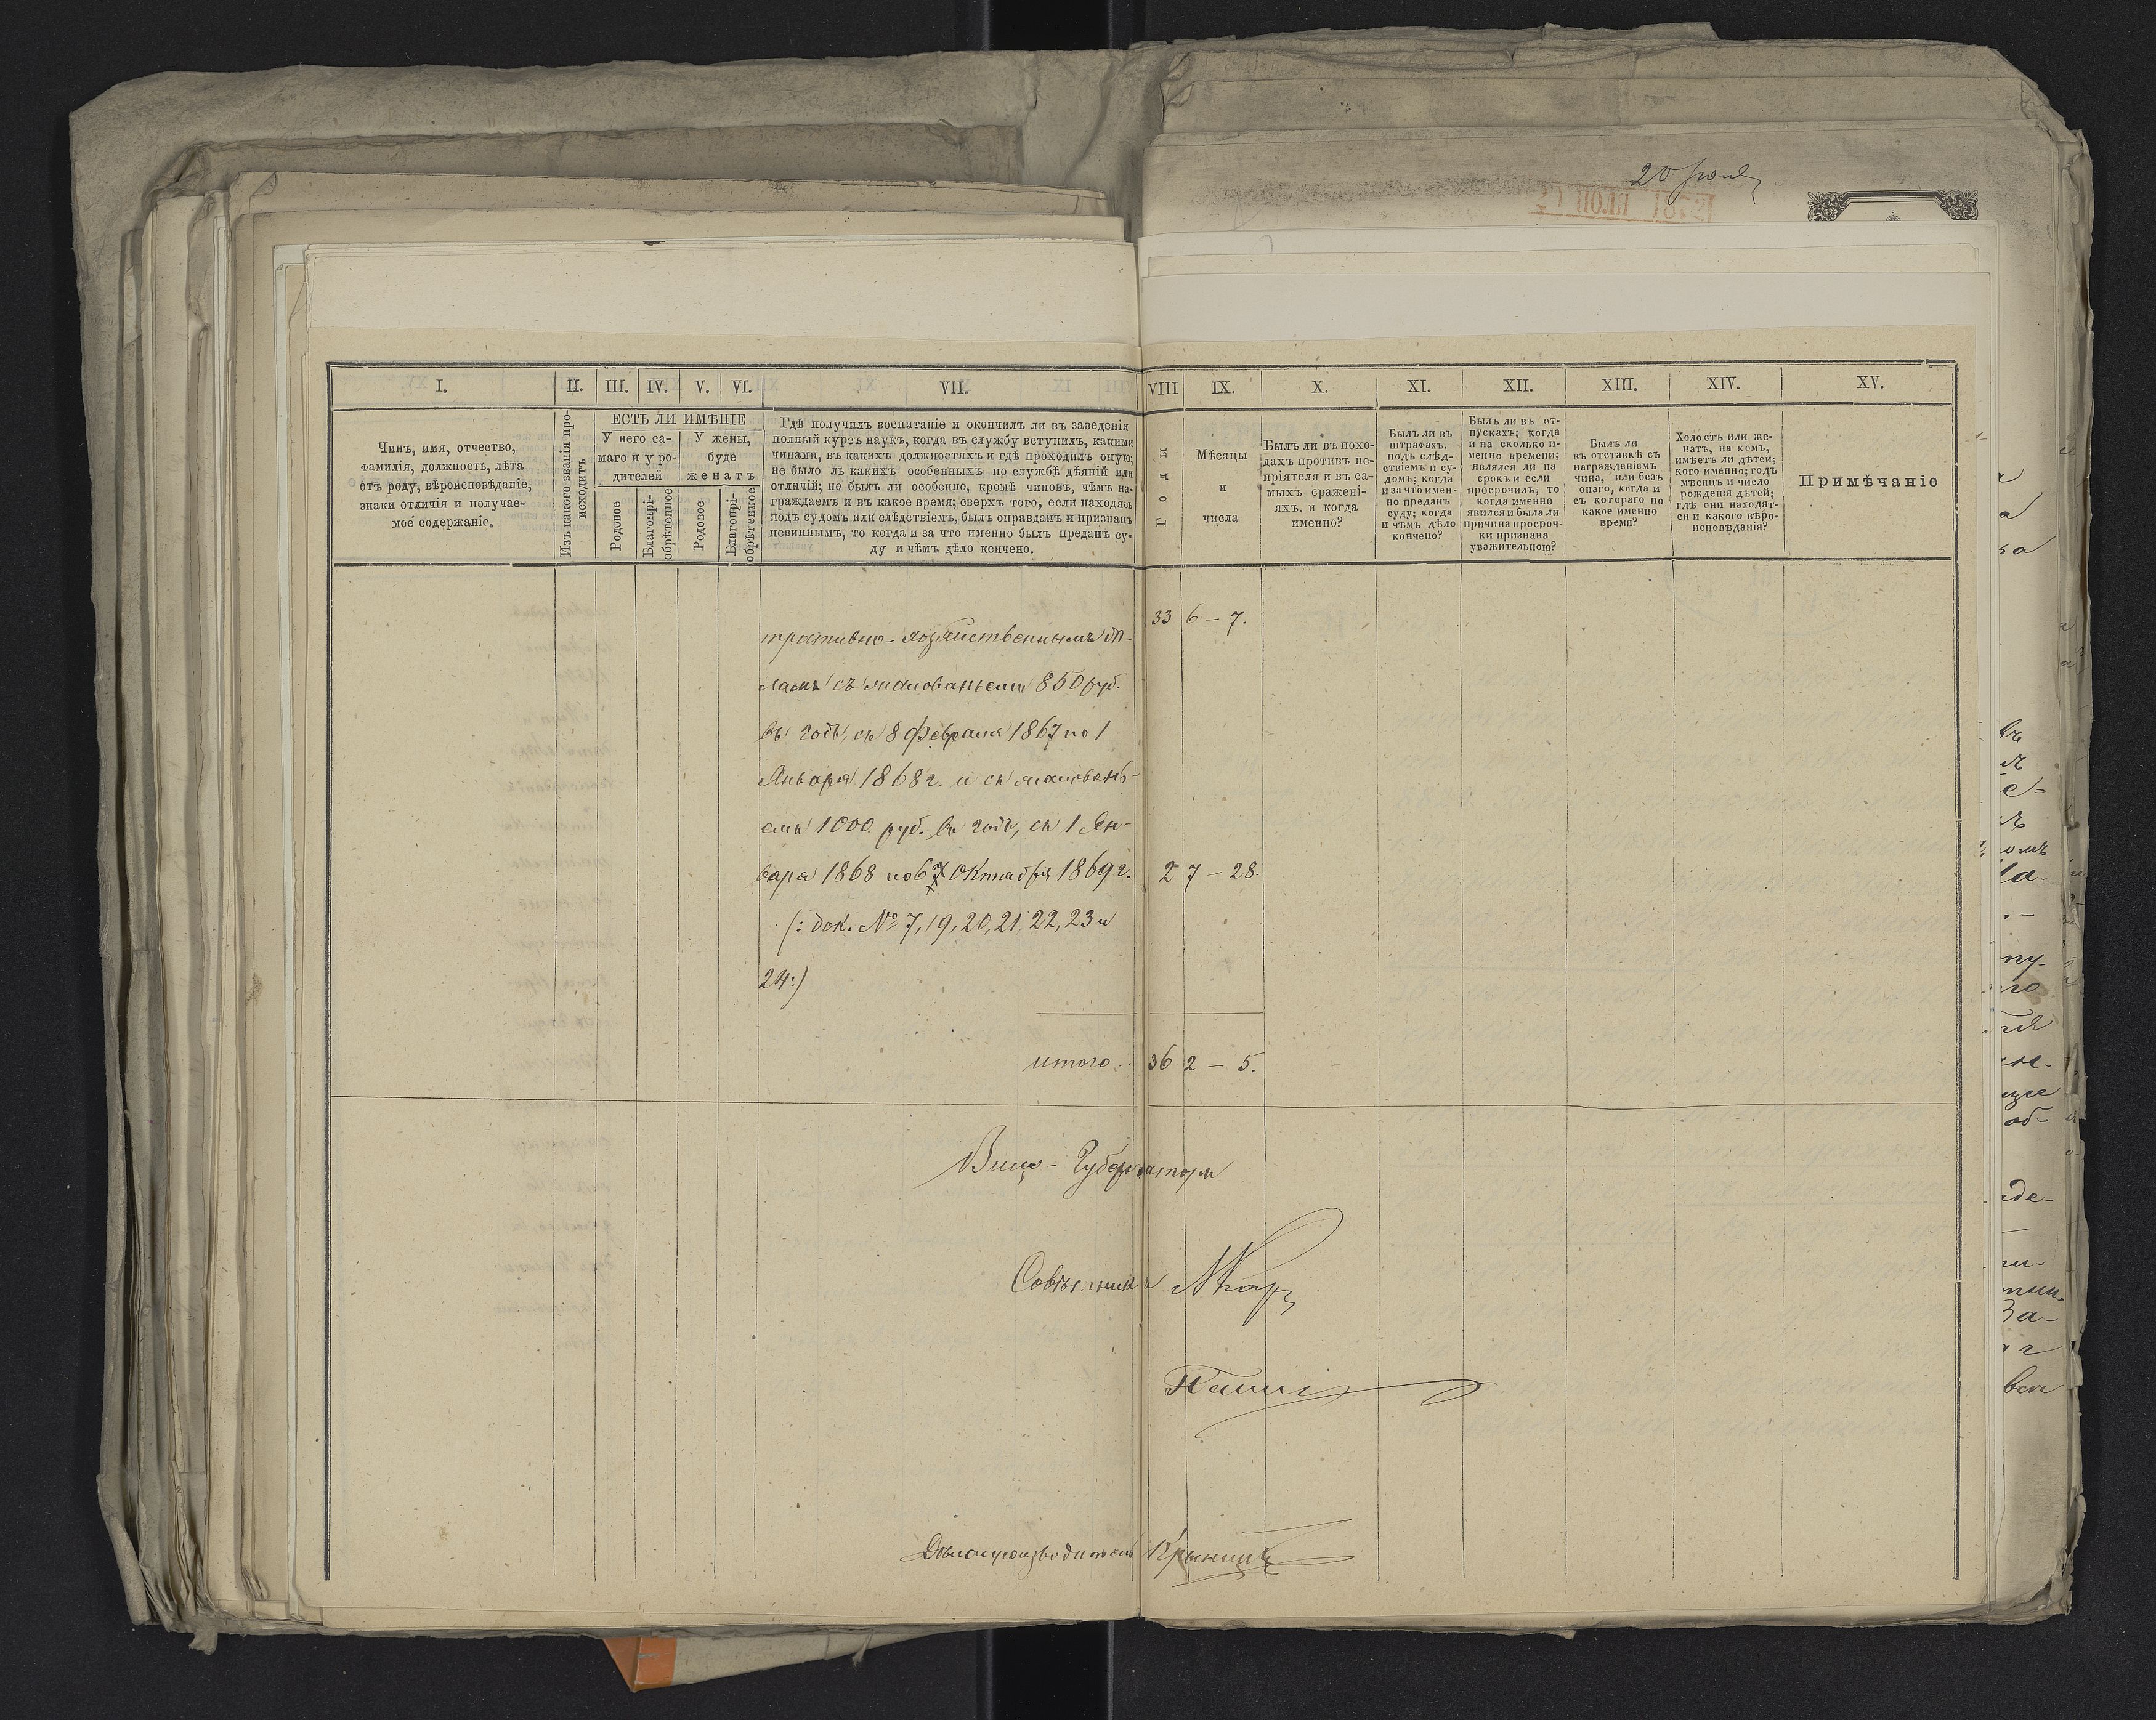 20 Іюня
I. II. III. IV. V. VI. VII. VIII IX. X. XI. XII. XIII. XIV. XV.
Чинъ, имя, отчество,
фамилія, должность, лѣта
отъ роду, вѣроисповѣданіе,
знаки отличія и получае-
мое содержаніе.
Изъ какого званія про-
исходитъ
ЕСТЬ ЛИ ИМѢНІЕ
У него са-
маго и у ро-
дителей
У жены,
буде
женатъ
Родовое
Благопрі-
обрѣтенное
Родовое
Благопрі-
обрѣтенное
Гдѣ получилъ воспитаніе и окончилъ ли въ заведеніи
полный курсъ наукъ, когда въ службу вступилъ, какими
чинами, въ какихъ должностяхъ и гдѣ проходилъ оную;
не было ль какихъ особенныхъ по службѣ дѣяній или
отличій; не былъ ли особенно, кромѣ чиновъ, чѣмъ на-
граждаемъ и въ какое время; сверхъ того, если находясь
подъ судомъ или слѣдствіемъ, былъ оправданъ и признанъ
невиннымъ, то когда и за что именно былъ преданъ су-
ду и чѣмъ дѣло кончено.
Годы
Мѣсяцы
и
числа
Былъ ли въ похо-
дахъ противъ не-
пріятеля и въ са-
мыхъ сражені-
яхъ, и когда
именно?
Былъ ли въ
штрафахъ,
подъ слѣд-
ствіемъ и су-
домъ; когда
и за что имен-
но преданъ
суду; когда
и чѣмъ дѣло
кончено?
Былъ ли въ от-
пускахъ; когда
и на сколько и-
менно времени;
являлся ли на
срокъ и если
просрочилъ, то
когда именно
явился и была ли
причина просроч-
ки признана
уважительною?
Былъ ли
въ отставкѣ съ
награжденіемъ
чина, или безъ
онаго, когда и
съ котораго по
какое именно
время?
Холостъ или же-
натъ, на комъ,
имѣетъ ли дѣтей;
кого именно; годъ
мѣсяцъ и число
рожденія дѣтей;
гдѣ они находят-
ся и какого вѣро-
исповѣданія?
Примѣчаніе
33 6 – 7.
тративно-хозяйственнымъ дѣ-
ламъ съ жалованьемъ 850 руб.
въ годъ, съ 8 Февраля 1867 по 1
Января 1868 г. и съ жаловань-
емъ 1000 руб. въ годъ, съ 1 Ян-
варя 1868 по 6 Октября 1869 г. 2 7 – 28.
(: док. № 7, 19, 20, 21, 22, 23 и
24:)
итого... 36 2 – 5.
Вице-Губернаторъ
Совѣтникъ
Дѣлопроизводитель